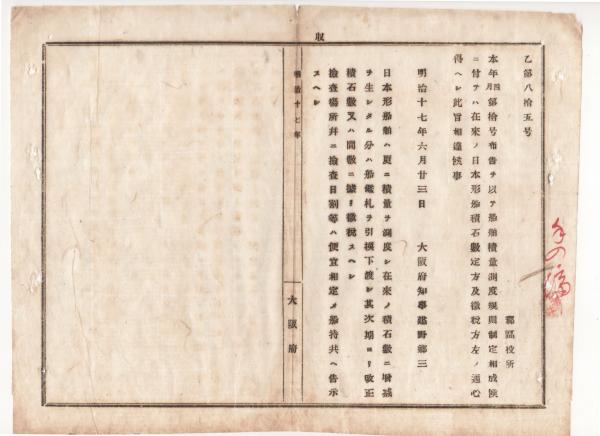 収
乙第八拾五号
郡区役所
本年四月第拾号布告ヲ以テ船舶積量測度規則制定相成候
ニ付テハ在来ノ日本形船積石数定方及徴税方左ノ通心
得ヘシ此旨相達候事
明治十七年六月廿三日 大阪府知事建野郷三
日本形船舶ハ更ニ積量ヲ測度シ在来ノ積石数ニ増減
ヲ生シタル分ハ船鑑札ヲ引換下渡シ其次期ヨリ改正
積石数又ハ間数ニ據リ徴税スヘシ
検査場所并ニ検査日割等ハ便宜相定メ船持共ヘ告示
スヘシ
明治十七年
大阪府